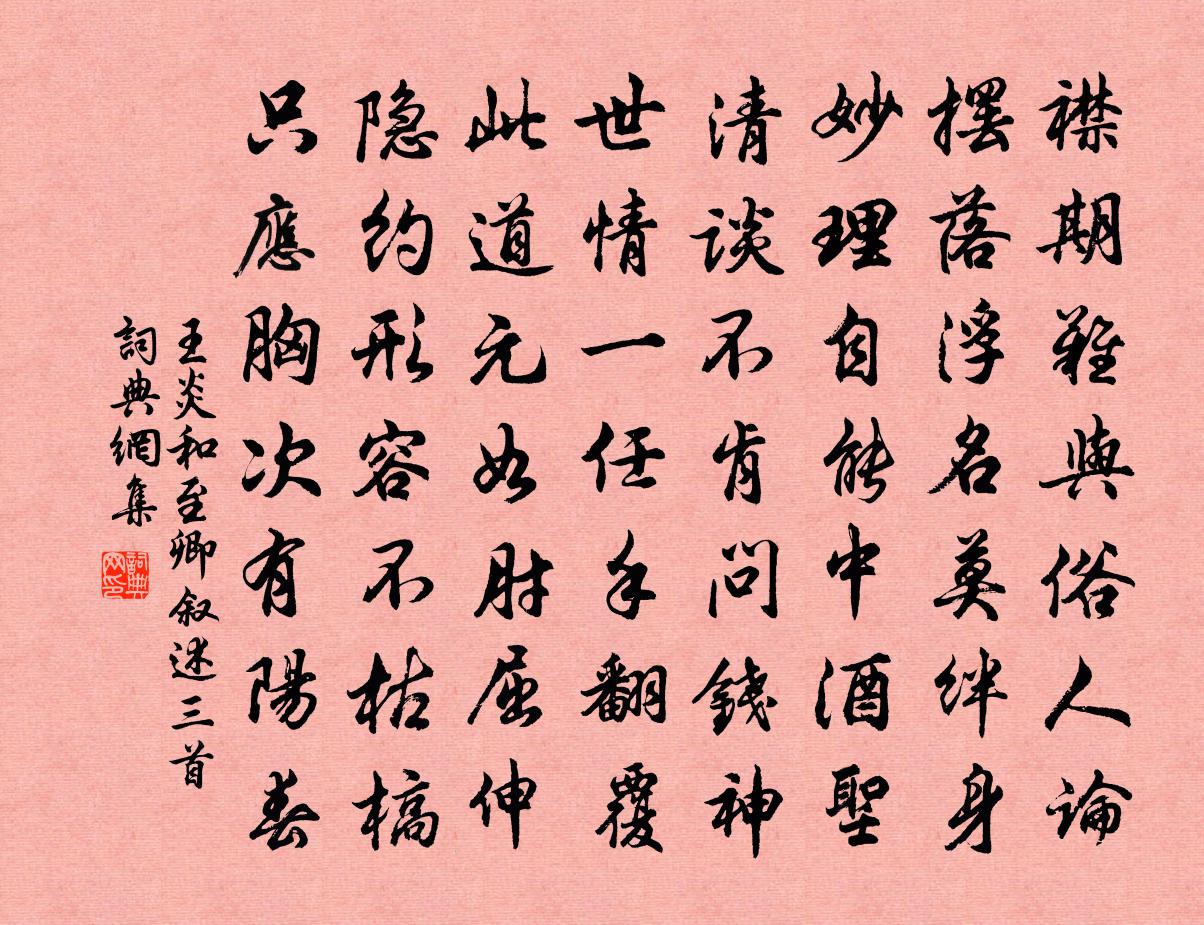 襟期難與俗人論
擺落浮名莫絆身
妙理自能中酒聖
清談不肯問錢神
世情一任手翻覆
此道元如肘屈伸
隐約形容不枯槁
只應胸次有陽春
王炎和至卿叙述三首
詞典網集
詞典网印